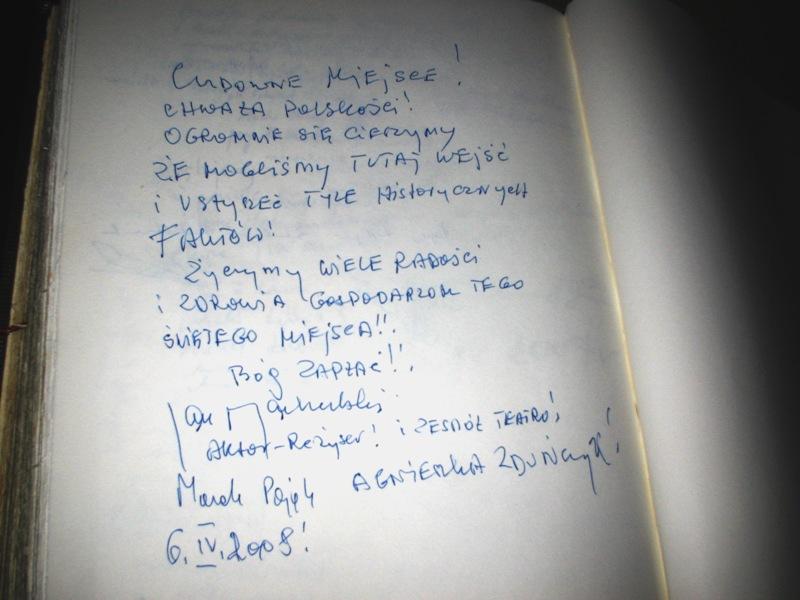 CUDOWNE MIEJSCE!
CHWAŁA POLSKOŚCI!
OGROMNIE SIĘ CIESZYMY
ŻE MOGLIŚMY TUTAJ WEJŚĆ
i USŁYSZEĆ TYLE HISTORYCZNYCH
FAKTÓW!
Życzymy WIELE RADOŚCI
i ZDROWIA GOSPODARZOM TEGO
ŚWIĘTEGO MIEJSCA!!
BÓG ZAPŁAĆ!!
AKTOR-Reżyser! i ZESPÓŁ TEATRU!
Marek AGNIESZKA
6.IV.2008!